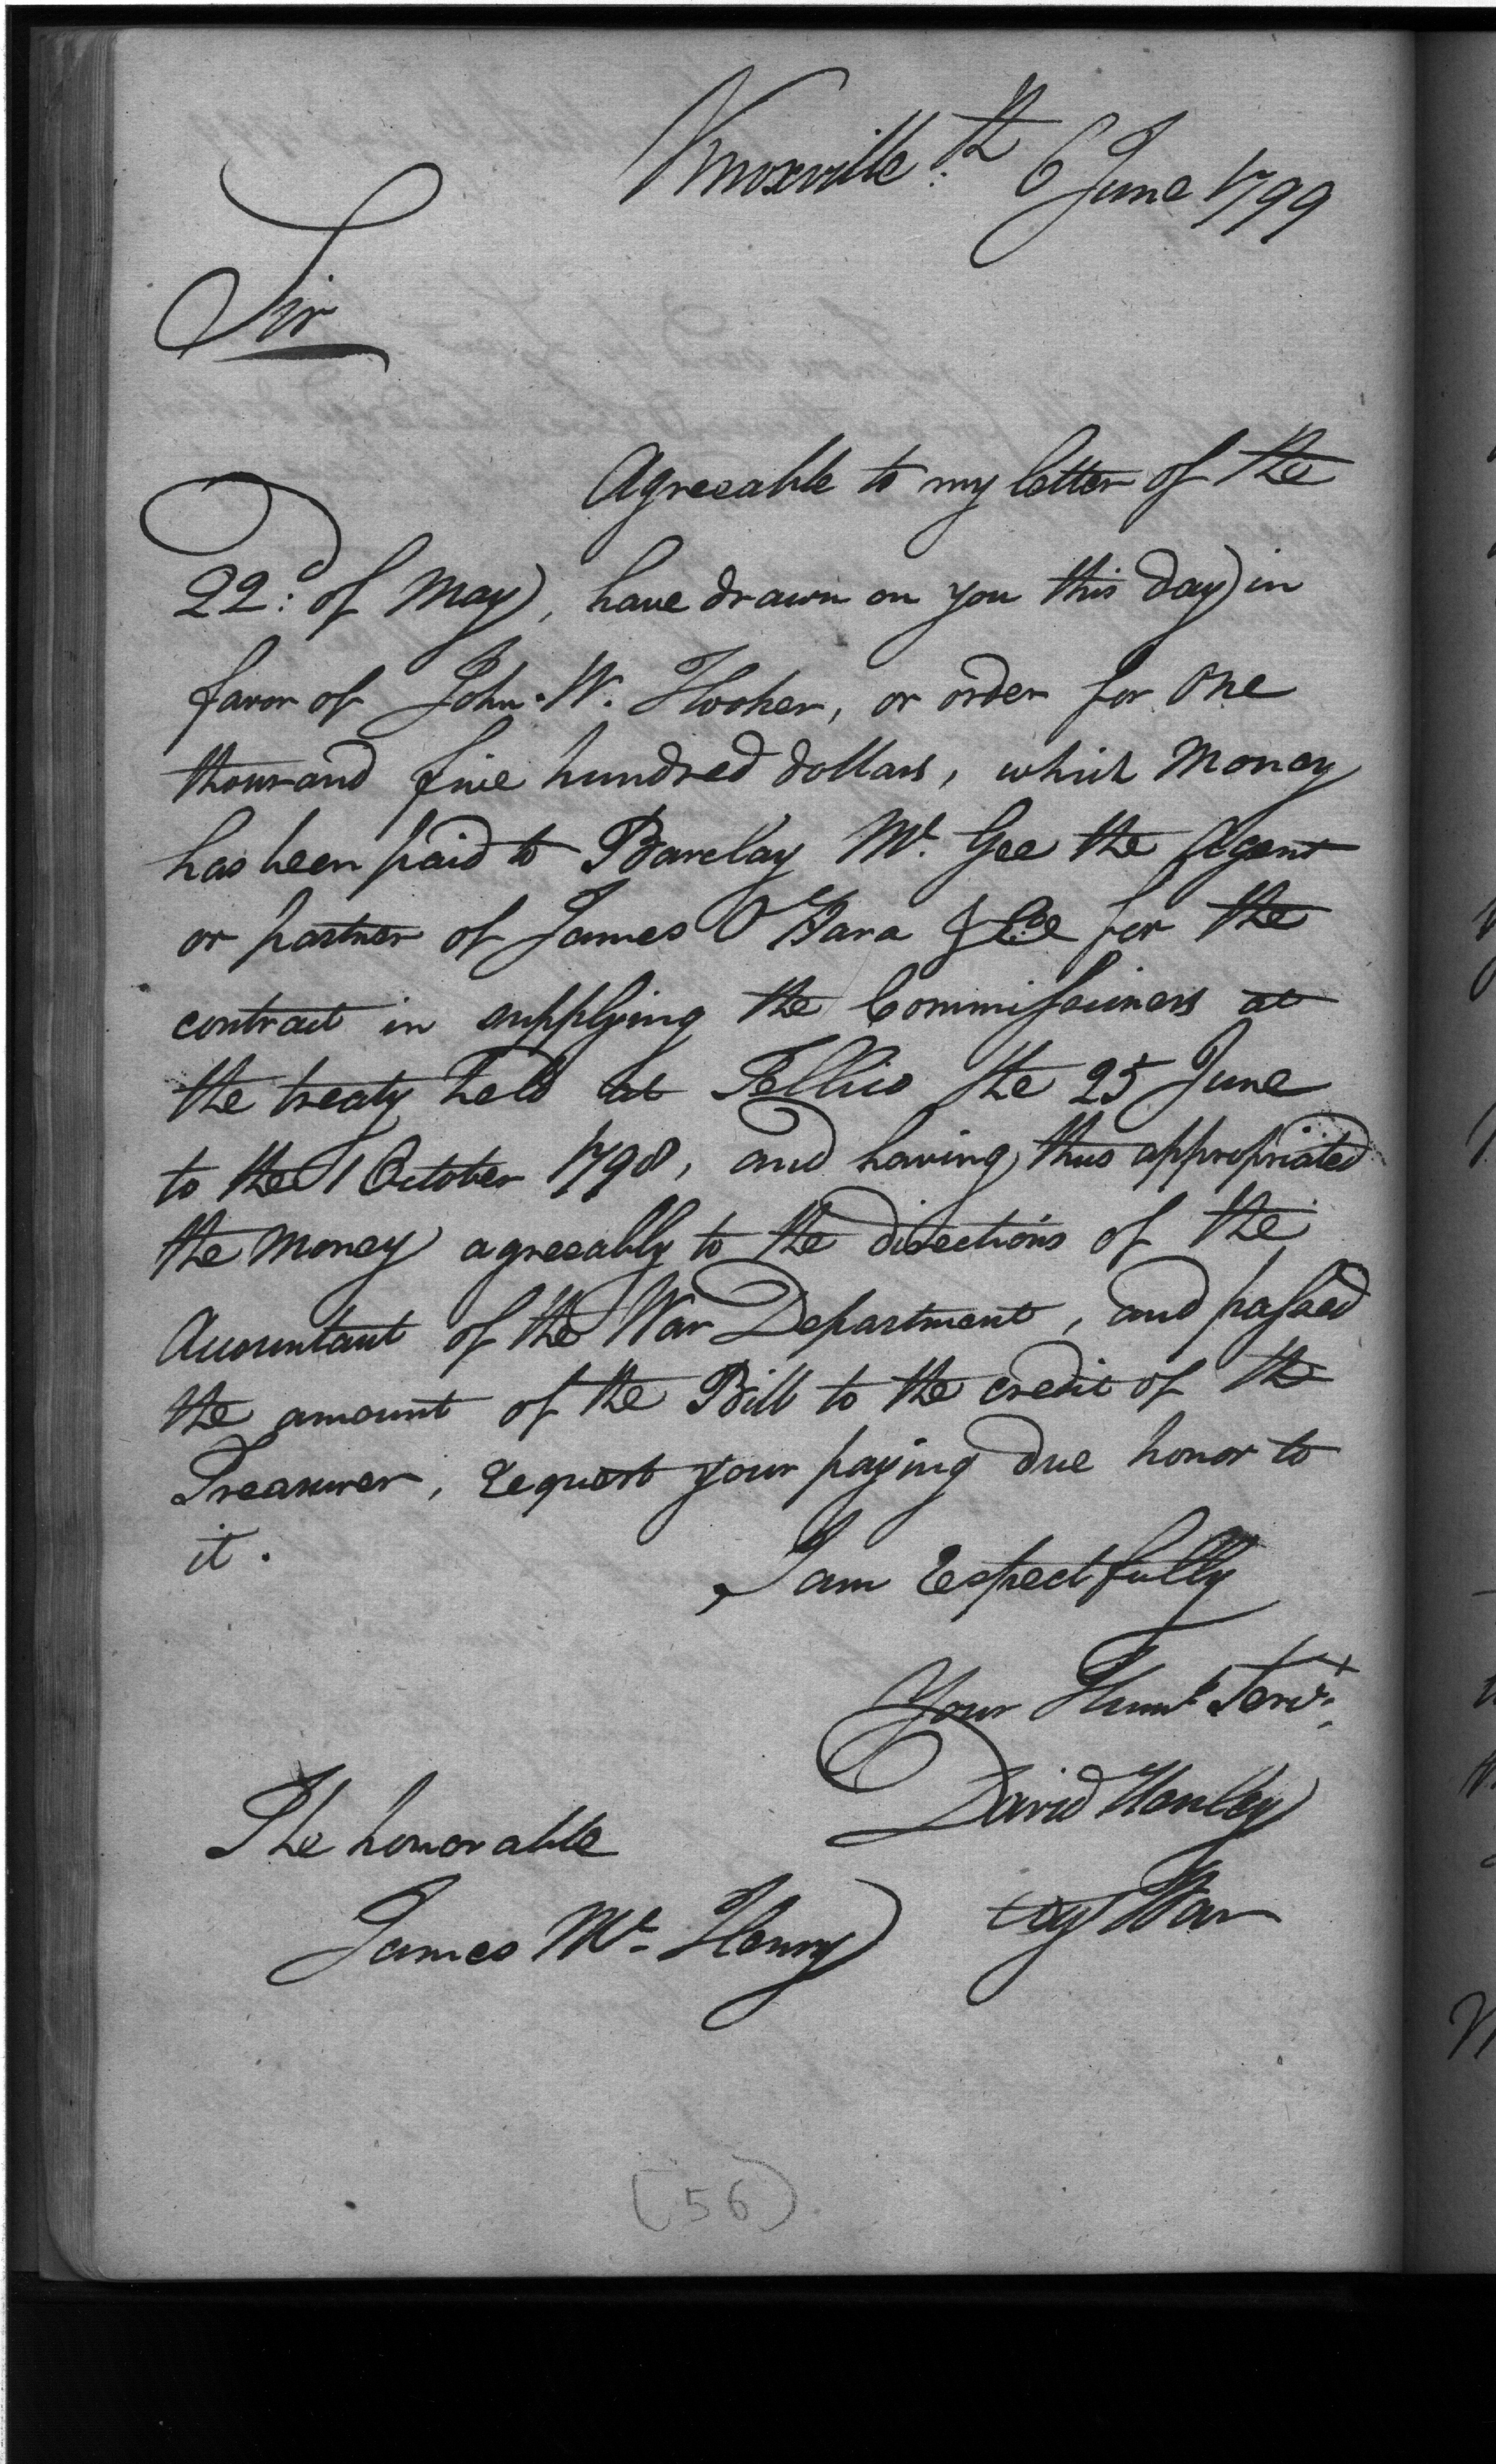 Knoxville 6 June 1799
Sir
Agreeable to my letter of the
22:d of May, have drawn on you this day in
favor of John W. Hooker, or order for One
thousand five hundred dollars, which Money
has been paid to Barclay Mc. Gee the Agent
or partner of James O'Hara & Coe for the
contract in supplying the Commissioners at
the treaty held at Tellico the 25 June
to the 1 October 1798, and having thus appropriated
the Money agreeably to the directions of the
Accountant of the War Department, and passed
the amount of the Bill to the credit of the
Treasurer, Request your paying due honor to
it.
I am Respectfully
Your Humb Servt.
David Henley
The honorable
James Mc. Henry
Agt War
(56)